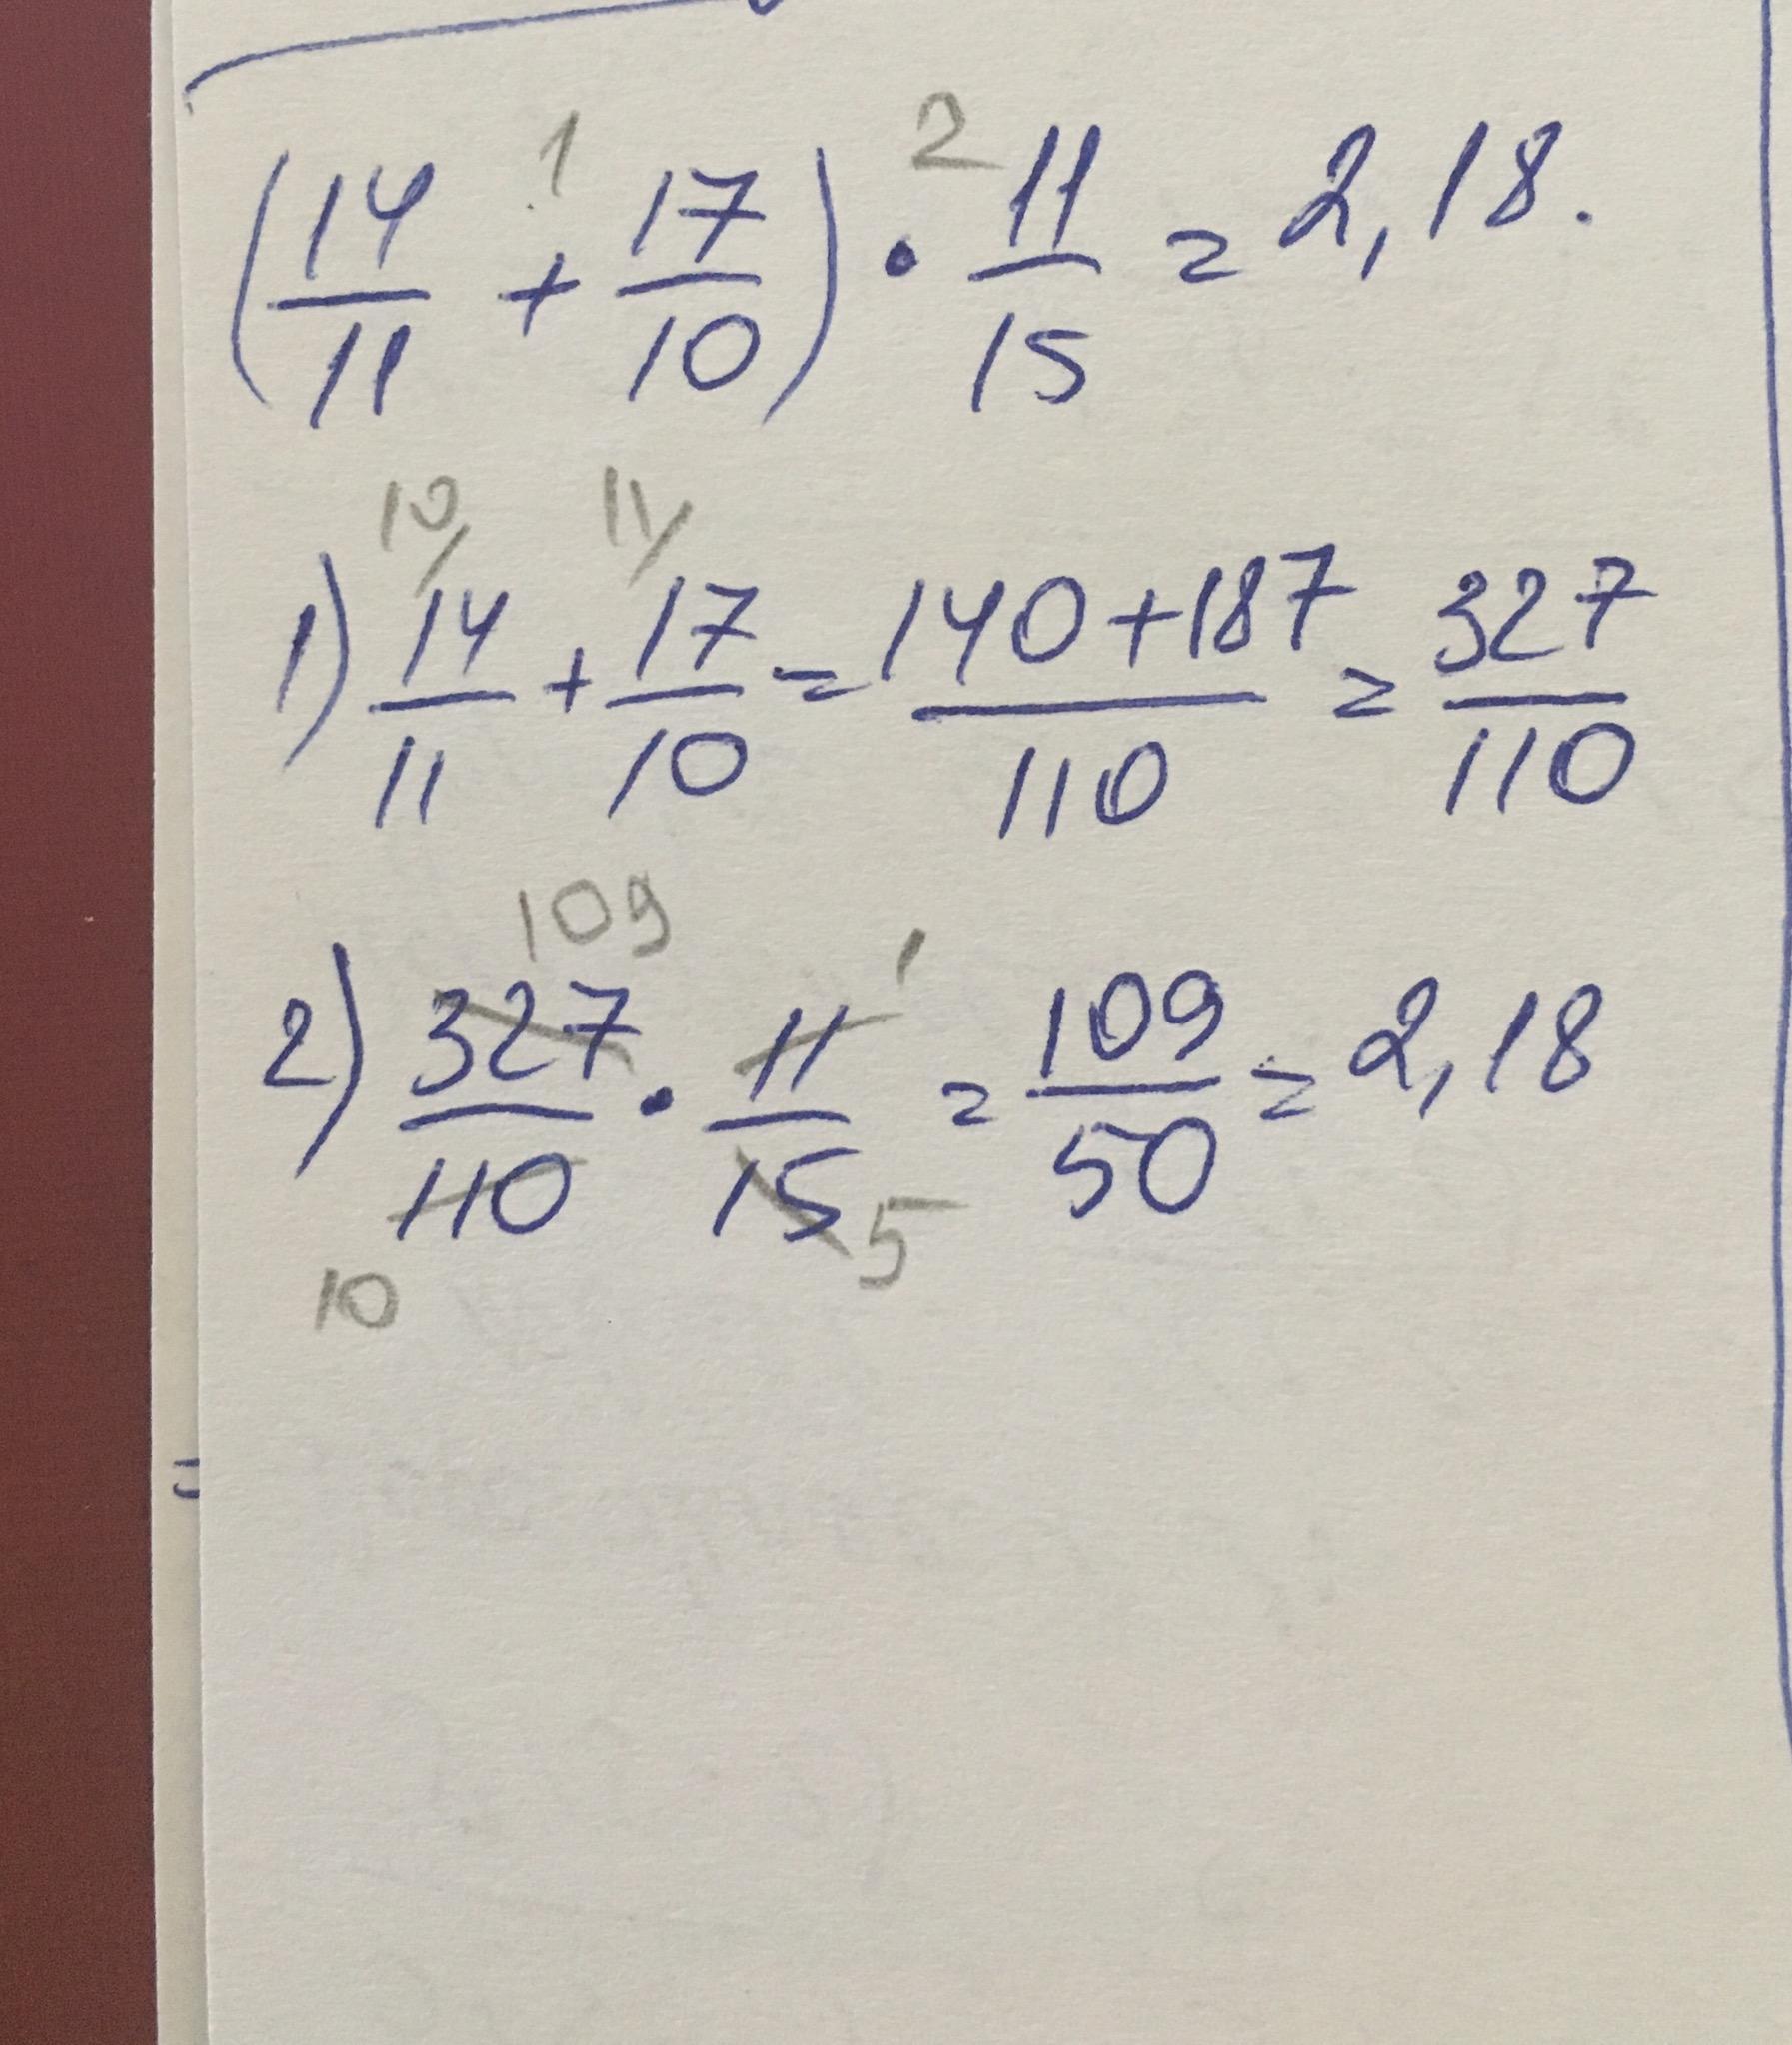 1 2
(14/11 + 17/10) · 11/15 = 2,18.
10/ 11/
1) 14/11 + 17/10 = 140+187/110 = 327/110
109 1
2) 327/110 · 11/15 = 109/50 = 2,18
10 5
=